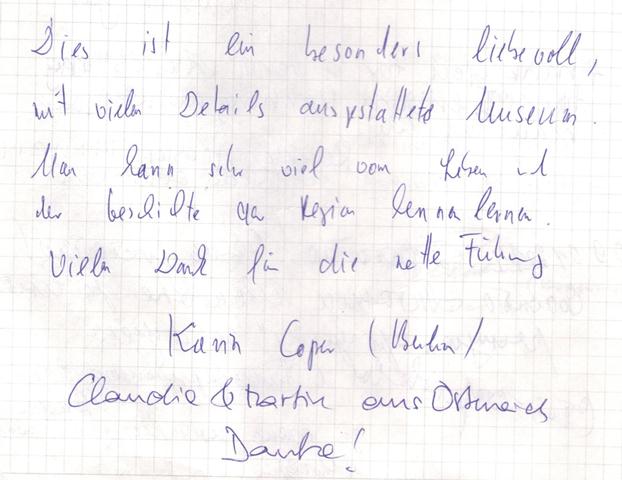 Dies ist ein besonders liebevoll,
mit vielen Details ausgestattetes Museum.
Man kann sehr viel vom Leben und
der Geschichte der Region kennen lernen.
Vielen Dank für die nette Führung
Karin Coper (Berlin)
Claudia & Martin aus Österreich
Danke!